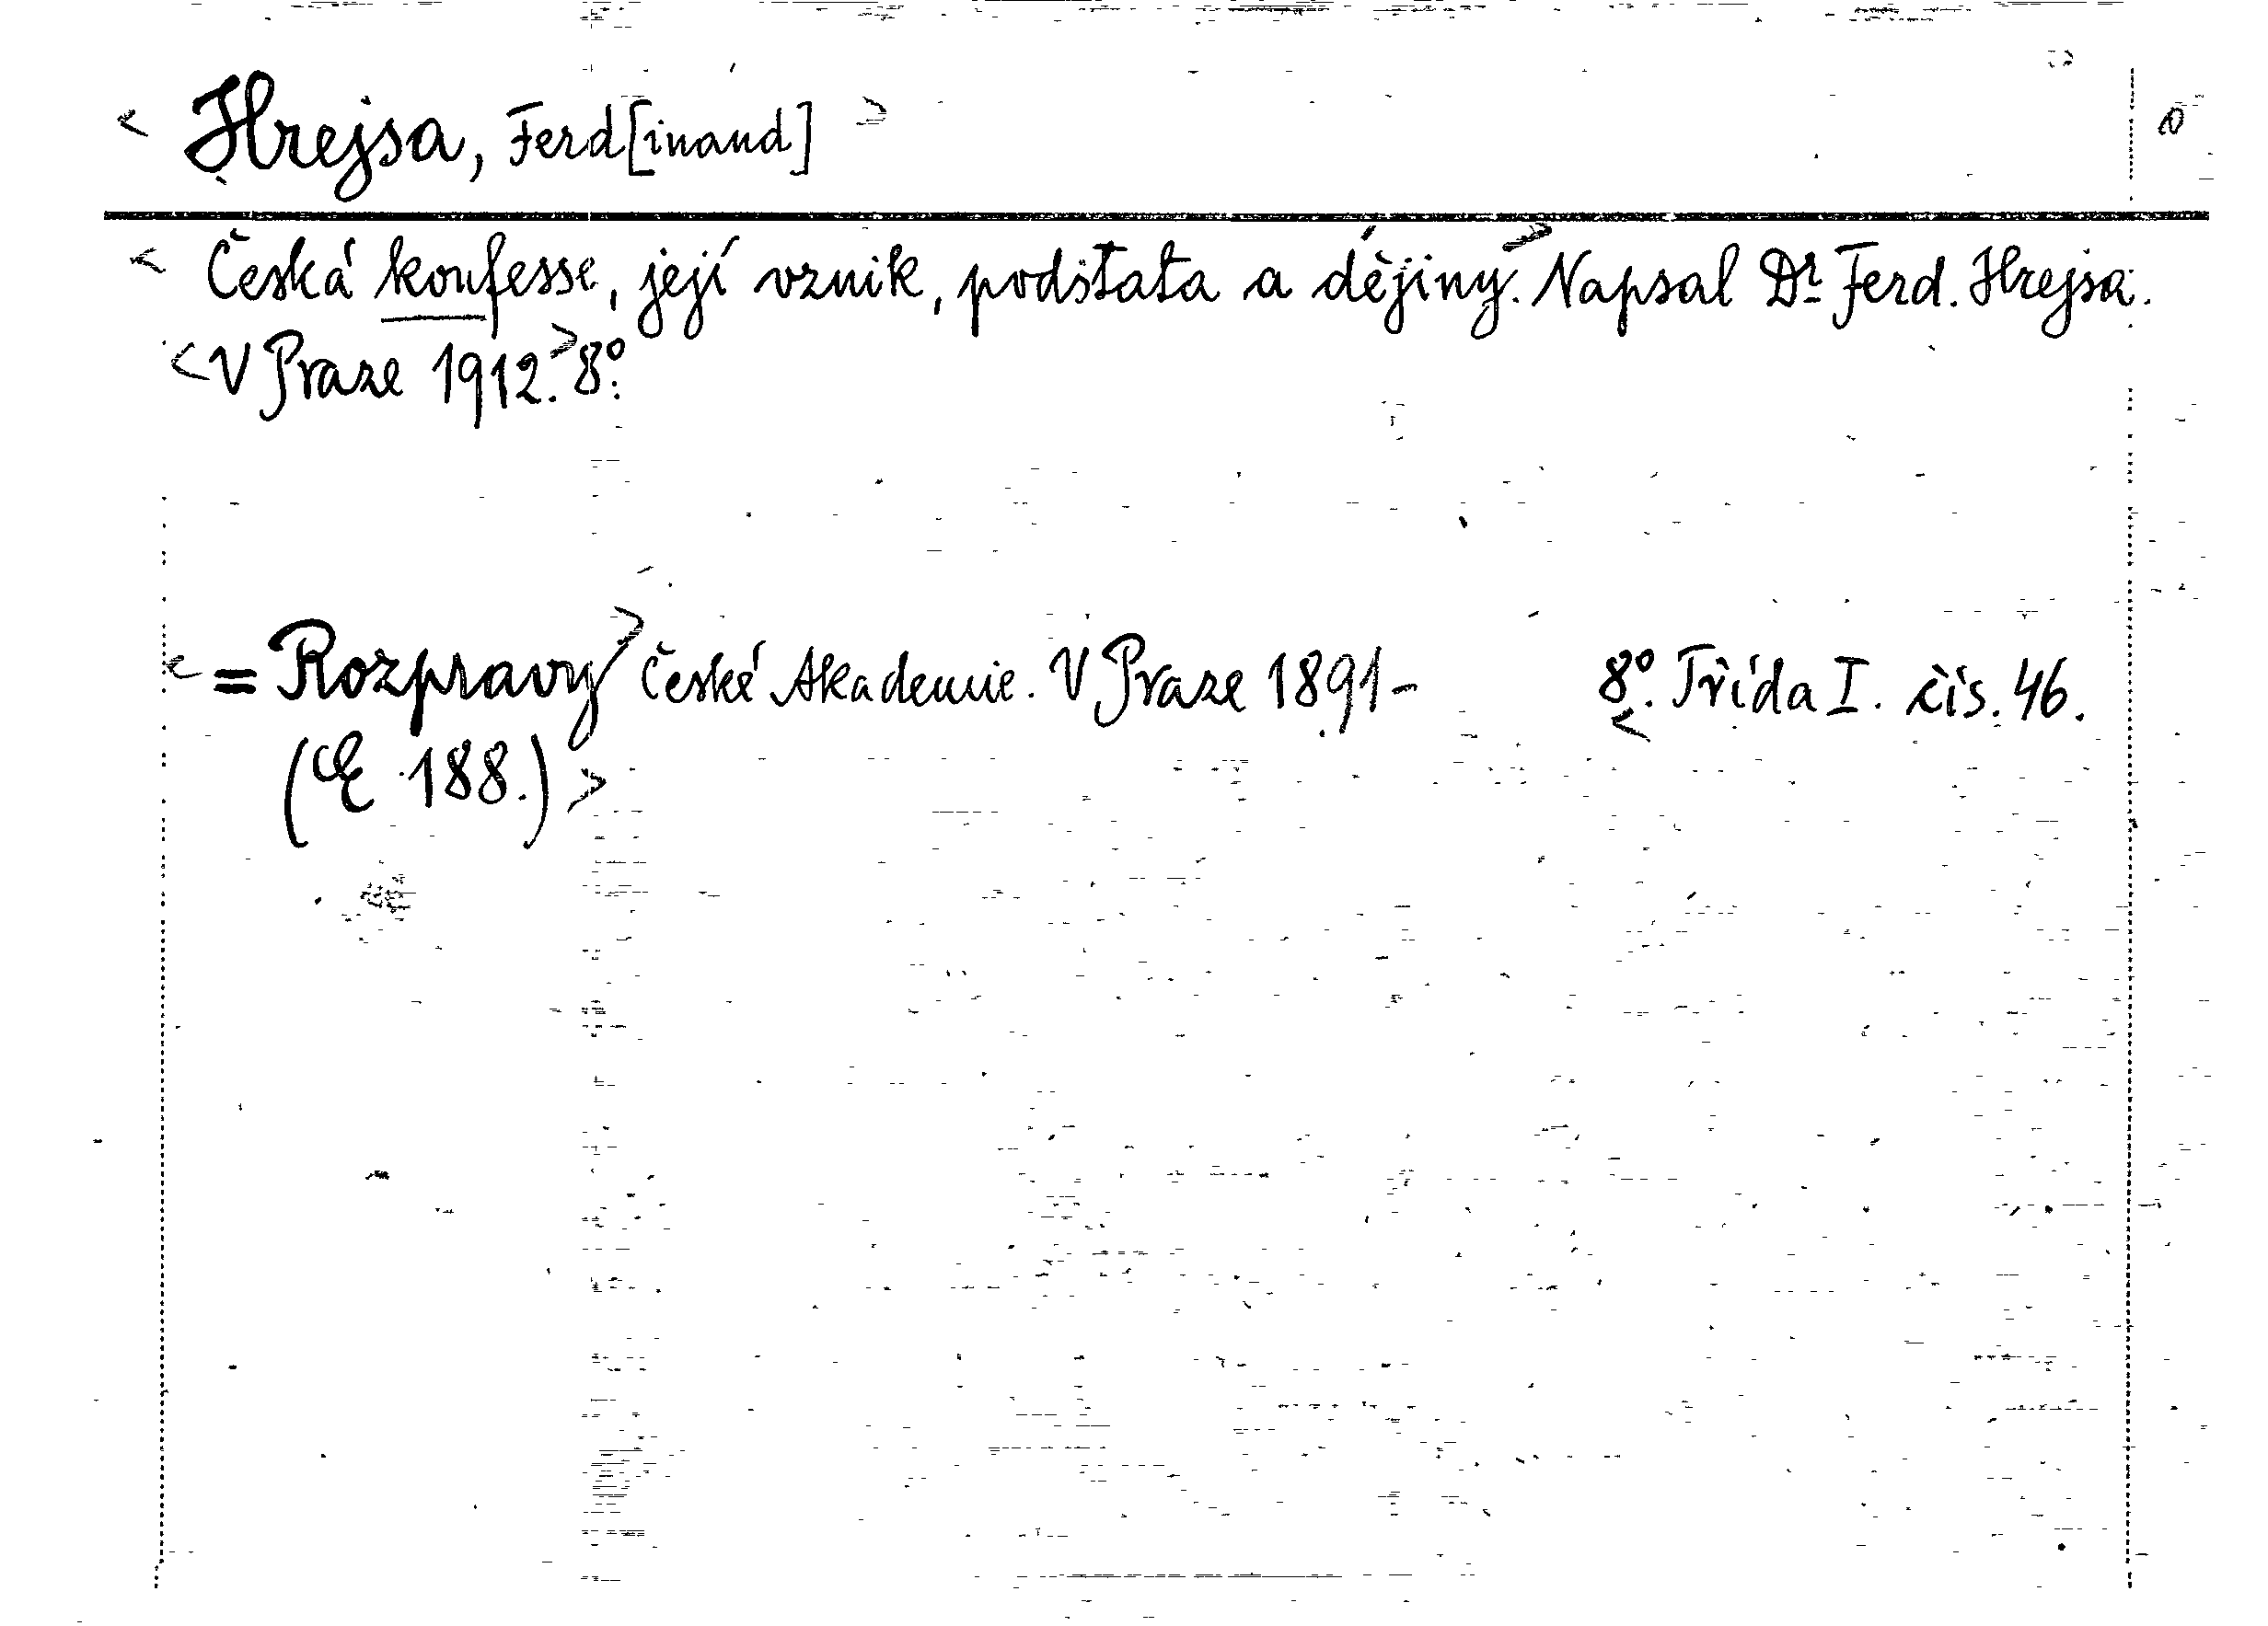 < Hrejsa, Ferd[inand] >
< Česká konfesse, její vznik, podstata a dějiny.> Napsal Dr. Ferd. Hrejsa.
<V Praze 1912.> 8°.
< = Rozpravy> České Akademie. V Praze 1891- 8°. <Třída I. čís. 46.
(E 188.) >